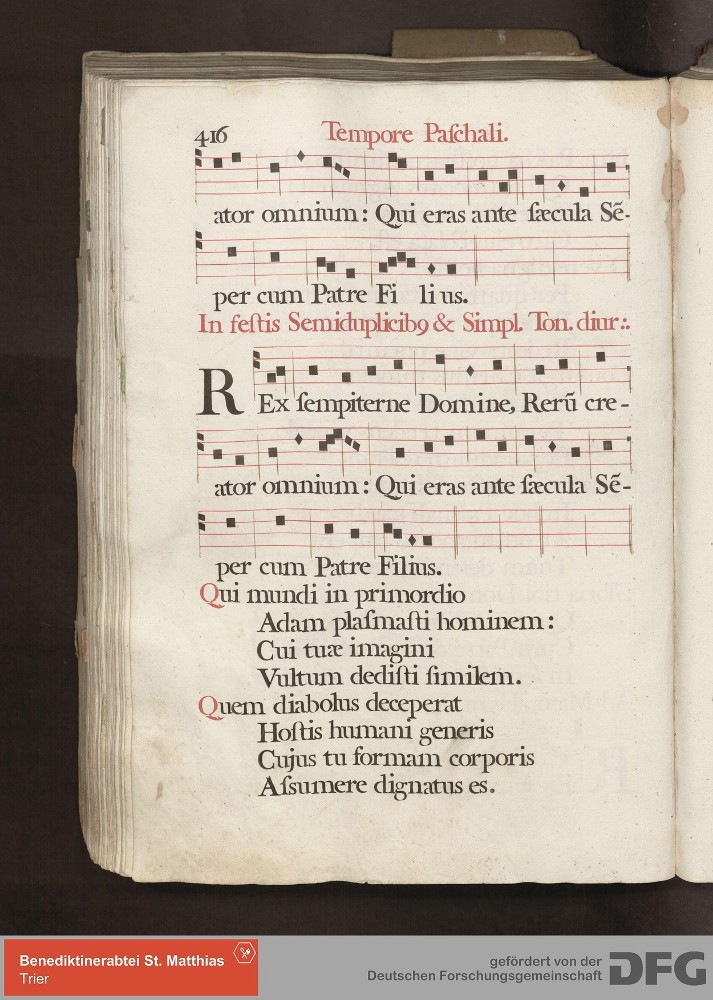 416 Tempore Paſchali.
ator omnium: Qui eras ante ſæcula Sẽ-
per cum Patre Fi li us.
In feſtis Semiduplicibꝯ & Simpl. Ton. diur:.
REx ſempiterne Domine, Rerũ cre-
ator omnium: Qui eras ante ſæcula Sẽ-
per cum Patre Filius.
Qui mundi in primordio
Adam plaſmaſti hominem:
Cui tuæ imagini
Vultum dediſti ſimilem.
Quem diabolus deceperat
Hoſtis humani generis
Cujus tu formam corporis
Aſsumere dignatus es.
Benediktinerabtei St. Matthias
Trier
gefördert von der
Deutschen Forschungsgemeinschaft
DFG